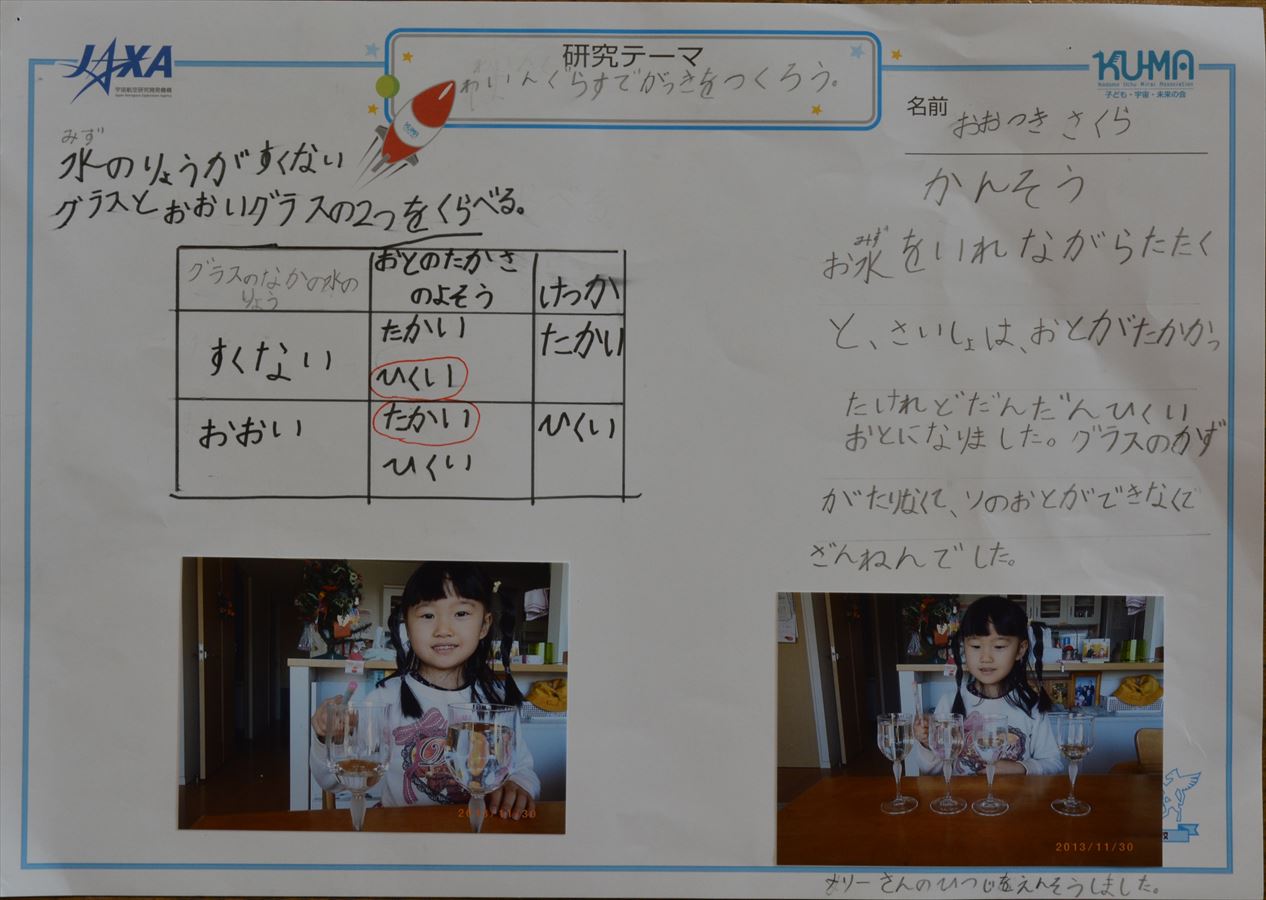 JAXA
宇宙航空研究開発機構
Japan Aerospace Exploration Agency
研究テーマ
わいんぐらすでがっきをつくろう。
KUMA
KU-MA
Kodomo Uchu Mirai Association
子ども・宇宙・未来の会
名前 おおつき さくら
みず
水のりょうがすくない
グラスとおおいグラスの2つをくらべる。
グラスのなかの水の
りょう
おとのたかさ
のよそう
けっか
すくない
たかい
ひくい
たかい
おおい
たかい
ひくい
ひくい
かんそう
みず
お水をいれながらたたく
と、さいしょは、おとがたかかっ
たけれどだんだんひくい
おとになりました。グラスのかず
がたりなくて、ソのおとができなくて
ざんねんでした。
2013/11/30
2013/11/30
メリーさんのひつじをえんそうしました。